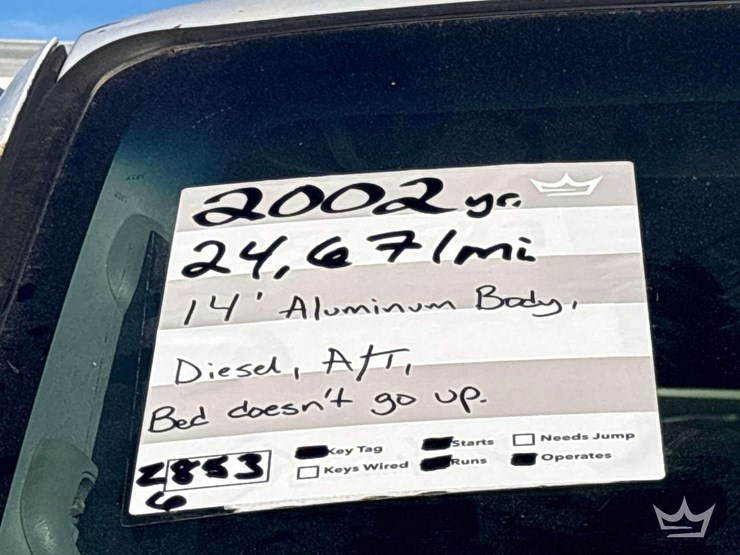 2002 yr.
24,671 mi
14' Aluminum Body,
Diesel, A/T,
Bed doesn't go up.
Key Tag
Starts
Needs Jump
Keys Wired
Runs
Operates
2853
6